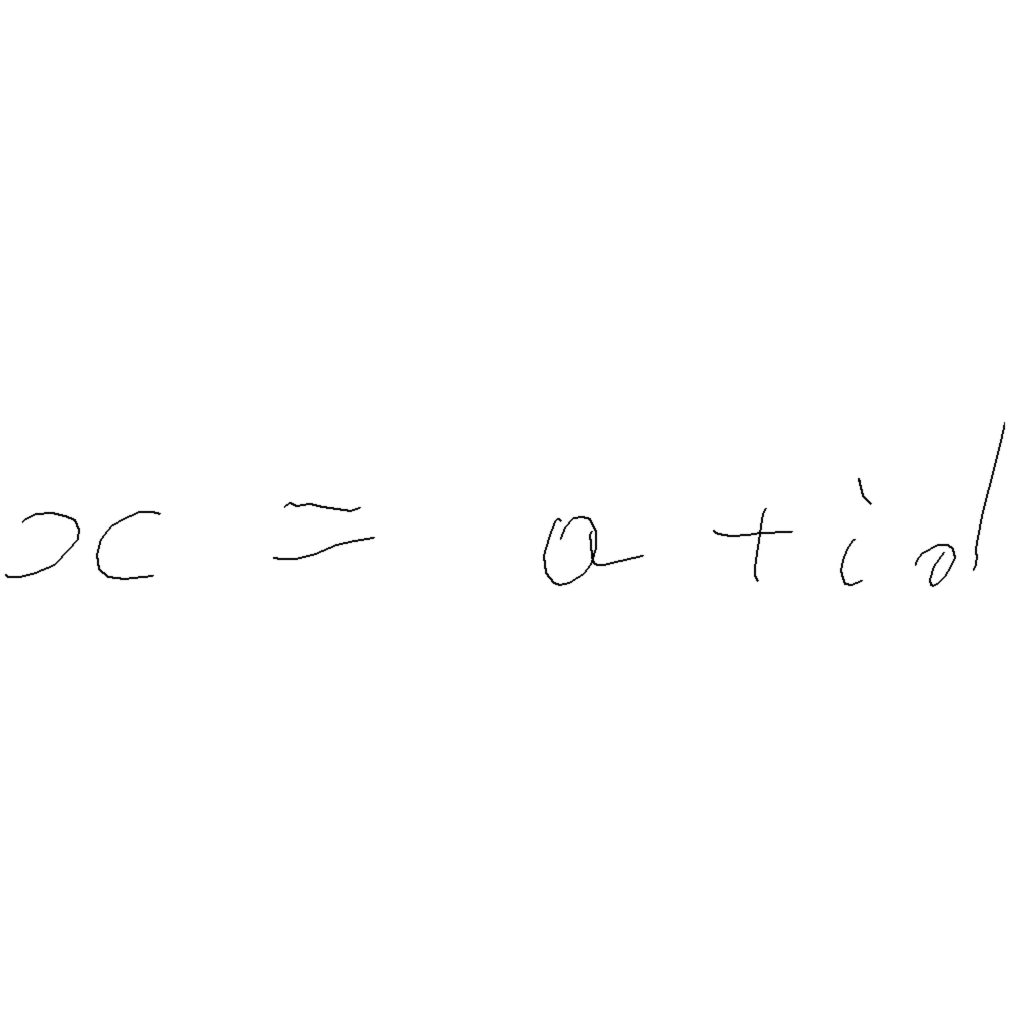 x = a + id